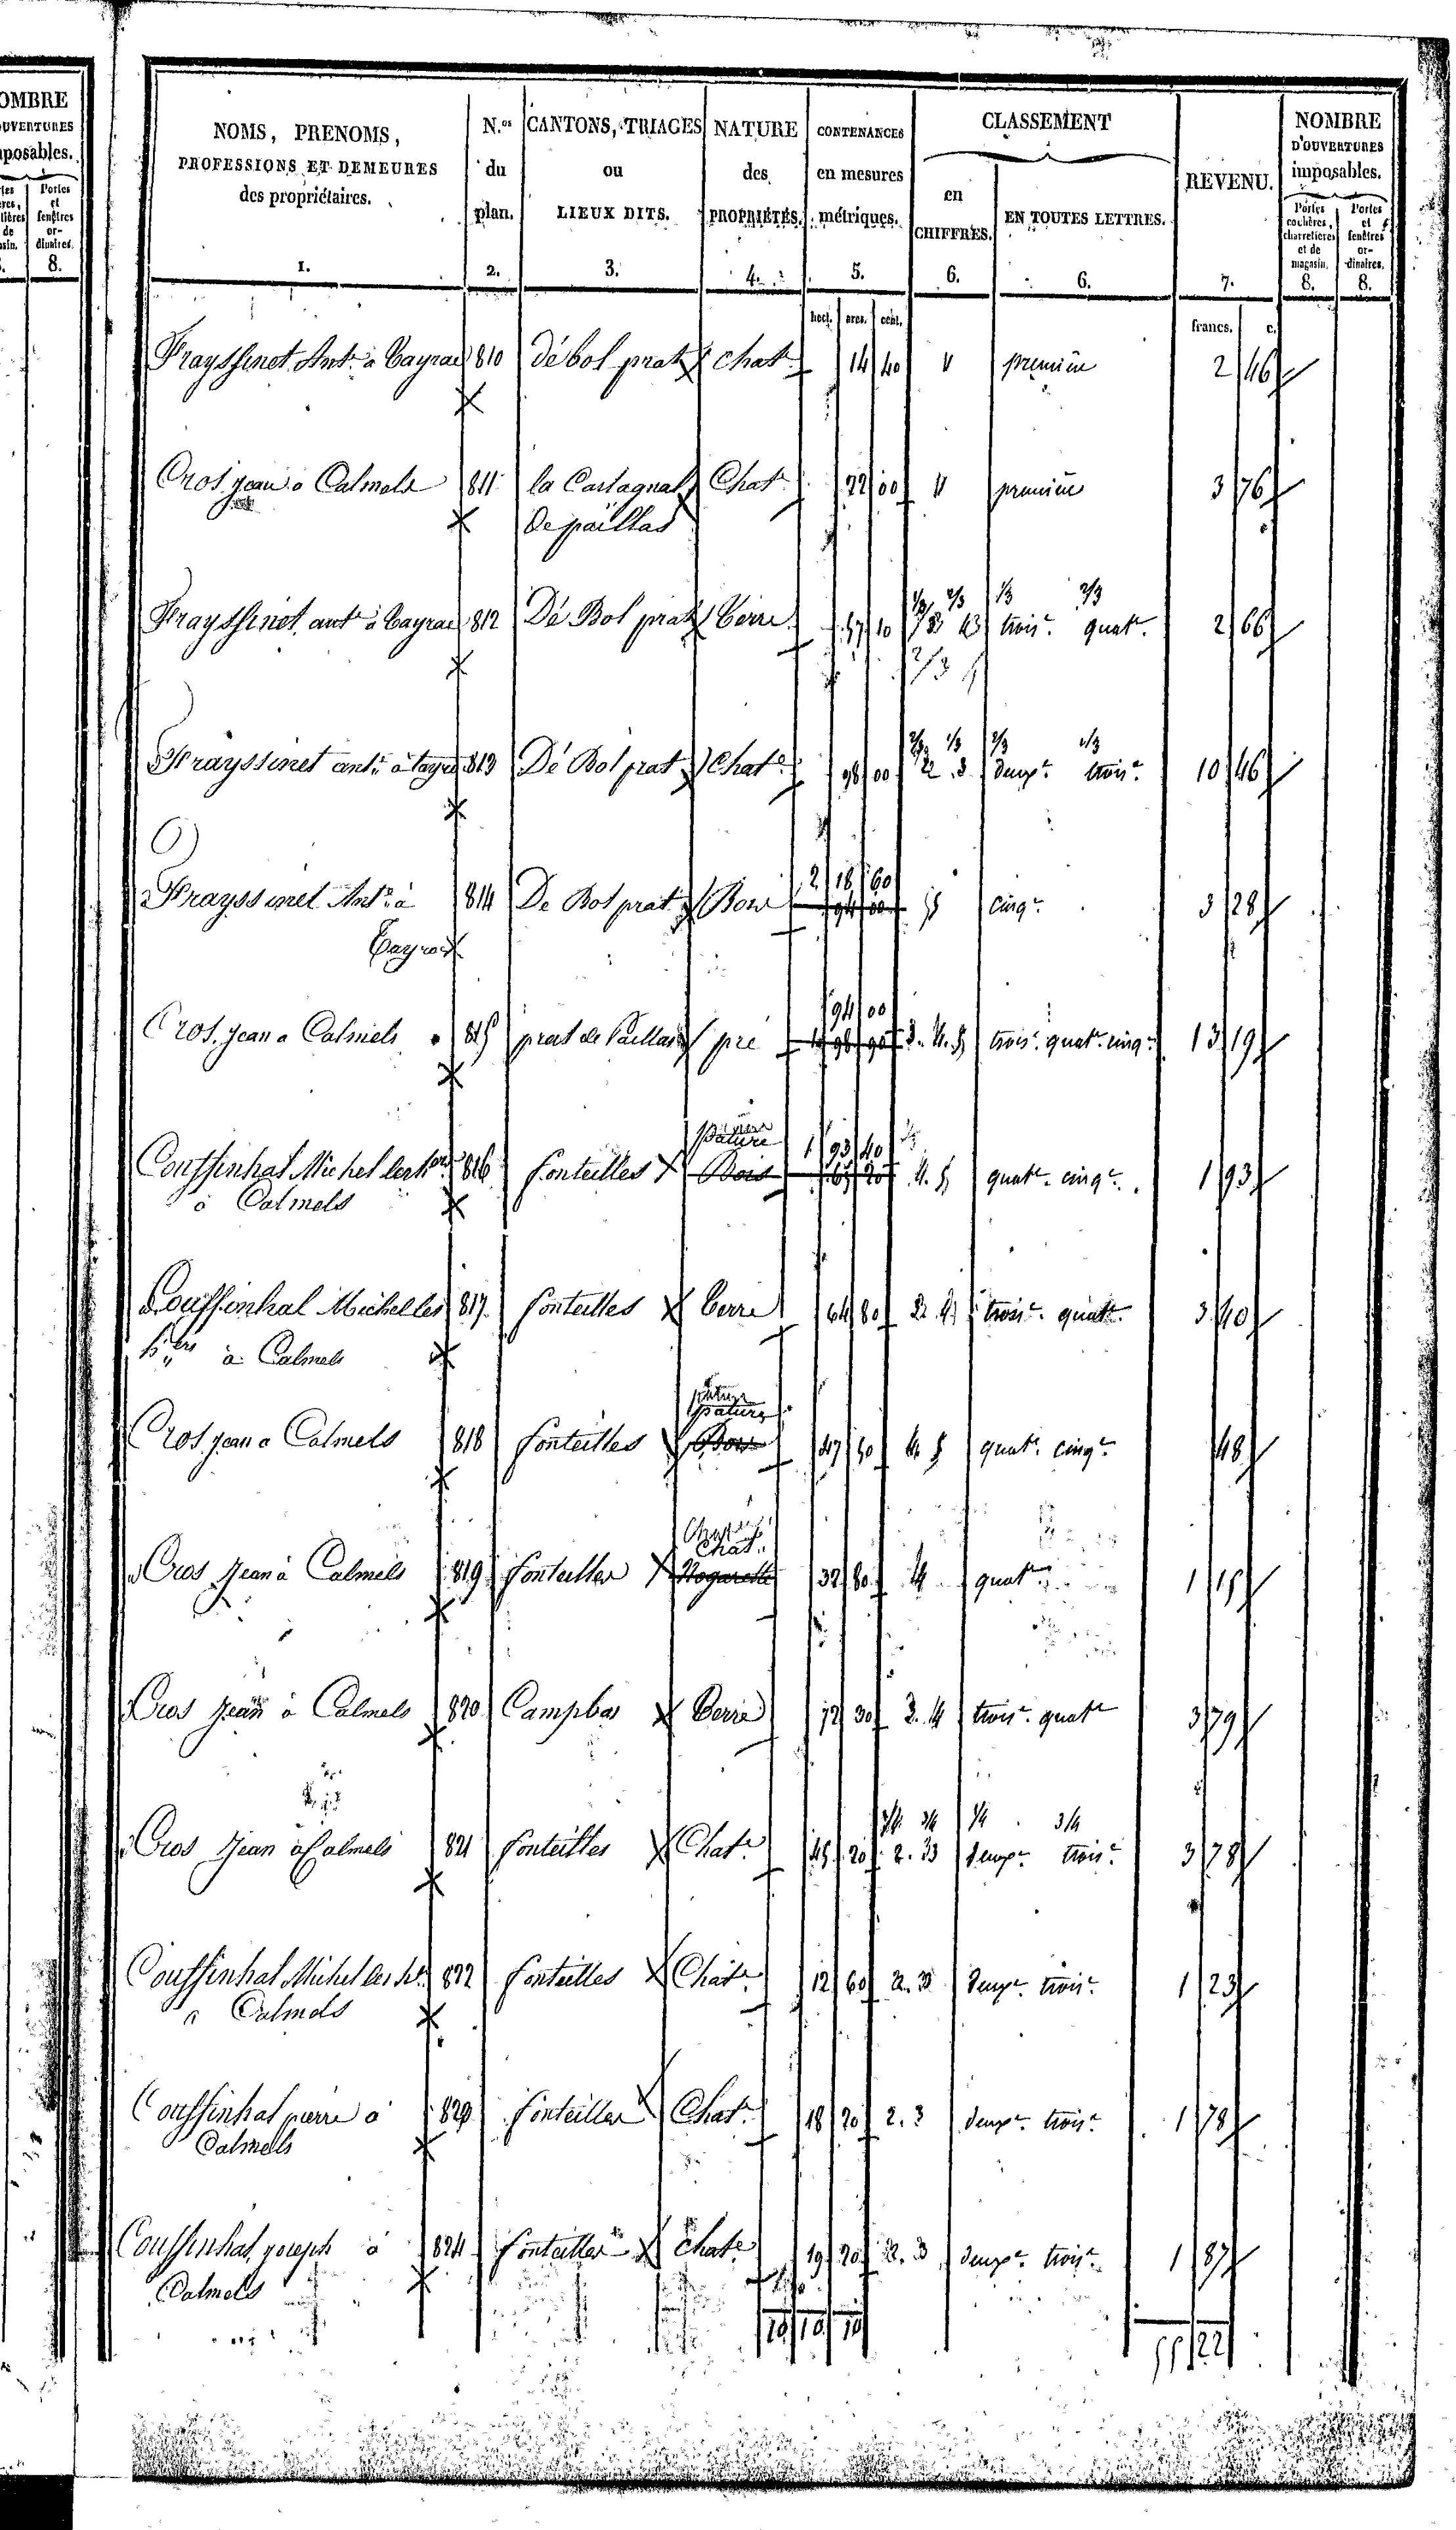 OMBRE
OUVERTURES
mposables.
Portes
et
fenêtres
or-
dinaires.
8.
NOMS, PRENOMS,
PROFESSIONS ET DEMEURES
des propriétaires.
1.
N.os
du
plan.
2.
CANTONS, TRIAGES
ou
LIEUX DITS.
3.
NATURE
des
PROPRIÉTÉS.
4.
CONTENANCES
en mesures
métriques.
5.
CLASSEMENT
en
CHIFFRES.
6.
EN TOUTES LETTRES.
6.
REVENU.
7.
NOMBRE
D'OUVERTURES
imposables.
Portes
cochères,
charretières
et de
magasin.
8.
Portes
et
fenêtres
or-
dinaires.
8.
hect. ares. cent.
francs. c.
Frayssinet Ant.e à Cayrac 810 Dé bol prat chat.e 14 40 1 première 2 46
Cros jean à Calmels 811 la Castagnal Chat.e 22 00 1 première 3 76
De paillas
1/3 2/3 1/3 2/3
Frayssinet ant.e à Cayrac 812 Dé Bol prat Terre 57 10 trois.e quat.e 2 66
2/3
2/3 1/3 2/3 1/3
Frayssinet ant.e à 813 Dé Bol prat Chat.e 98 00 2. 3 deux.e trois.e 10 46
2 18 60
Frayssinet Ant.e à 814 De Bol prat Bois 94 00 5 cinq.e 3 28
Cayrac
94 00
Cros jean a Calmels 815 prat de Paillas pré 3. 4. 5 trois.e quat.e cinq.e 13 19
pature 1 93 40
Couffinhal Michel 816 fonteilles Bois 4. 5 quat.e cinq.e 1 93
à Calmels
Couffinhal Michel les 817 fonteilles Terre 64 80 3. 4 trois.e quat.e 3 40
à Calmels
pature
Cros jean a Calmels 818 fonteilles Bois 47 50 4. 5 quat.e cinq.e 48
Chat.
Cros Jean à Calmels 819 fonteilles Nogarette 32 80 4 quat.e 1 15
Cros Jean à Calmels 820 Campbas Terre 72 30 3. 4 trois.e quat.e 3 79
1/4 3/4 1/4 3/4
Cros Jean à Calmels 821 fonteilles Chat.e 45 20 2. 3 deux.e trois.e 3 78
Couffinhal Michel les 822 fonteilles Chat.e 12 60 2. 3 deux.e trois.e 1 23
à Calmels
Couffinhal pierre à 823 fonteilles Chat.e 18 20 2. 3 deux.e trois.e 1 78
Calmels
Couffinhal joseph à 824 fonteilles Chat.e 19 20 2. 3 deux.e trois.e 1 87
Calmels
10 10 10
55 22